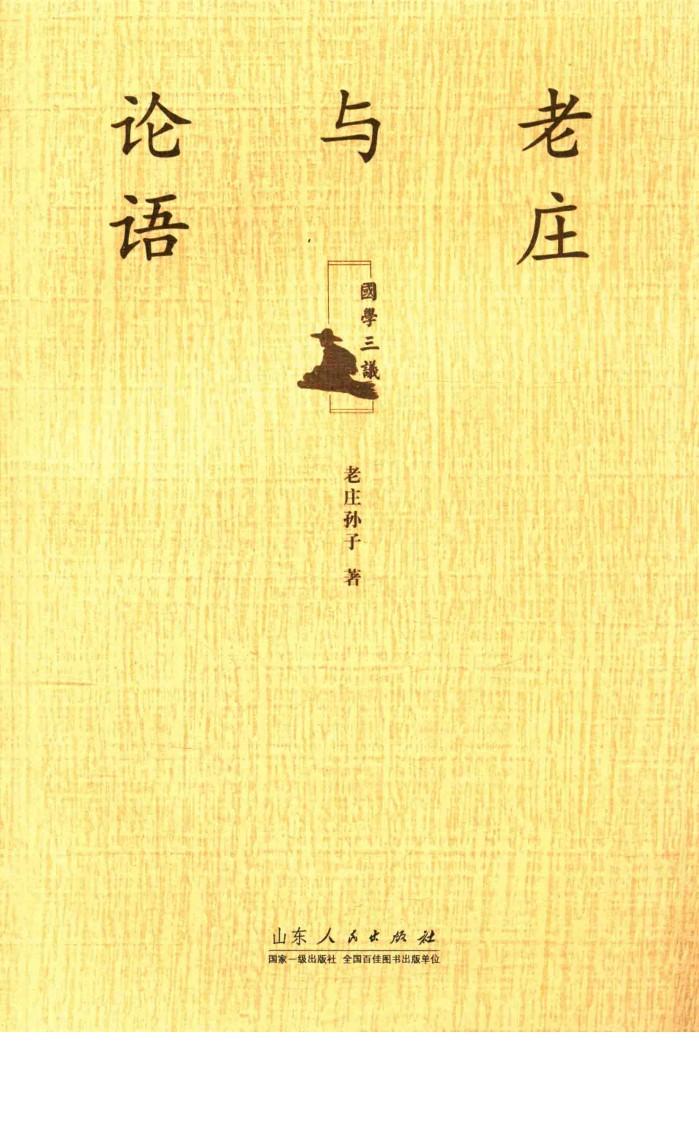 老庄
与
论语
國學三議
老庄孙子 著
山东人民出版社
国家一级出版社 全国百佳图书出版单位